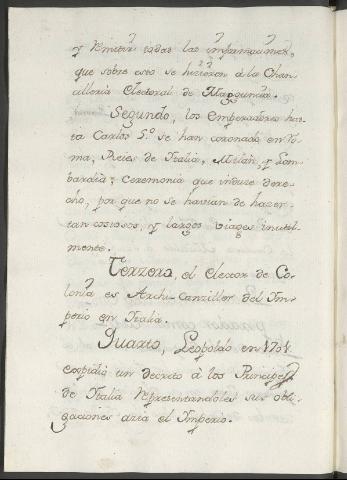 y remitir todas las informaciones,
que sobre esto se hizieron à la Chan-
cilloria Electoral de Maguncia.
Segundo, los Emperadores has-
ta Carlos 5.º se han coronado en Ro-
ma, Reies de Italia, Milàn, y Lom-
bardia; Ceremonia que induze dere-
cho, por que no se havian de hazer
tan costosos, y largos viages inutil-
mente.
Terzero, el Elector de Co-
lonia es Archi-Canziller del Im-
perio en Italia.
Quarto, Leopoldo en
expidiò un decreto à los Principes
de Italia representandoles sus obli-
gaciones àzia el Imperio.